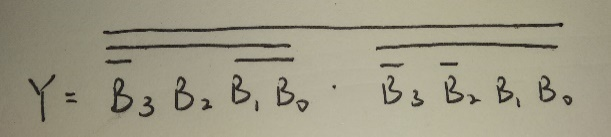 $Y = \overline{\overline{\overline{B}_3 B_2 \overline{B_1 B_0}} \cdot \overline{\overline{B}_3 \overline{B}_2 B_1 B_0}}$